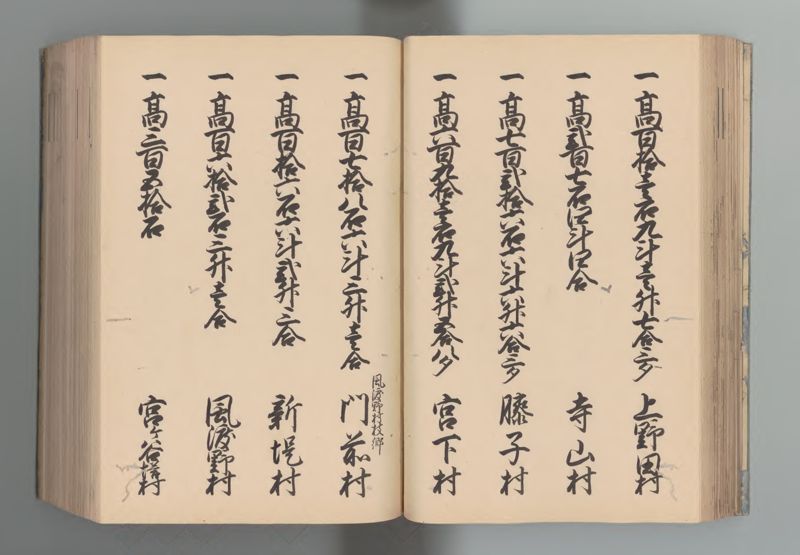 一高百拾壱石九斗壱升七合三夕 上野田村
一高弐百七石四斗四合 寺山村
一高七百弐拾六石六斗六升六合三夕 膝子村
一高六百九拾壱石九斗弐升五合八夕 宮下村
一高百七拾八石六斗三升壱合 風渡野村枝郷 門前村
一高百拾六石六斗弐升三合 新堤村
一高百六拾弐石三升壱合 風渡野村
一高三百五拾石 宮ヶ谷塔村